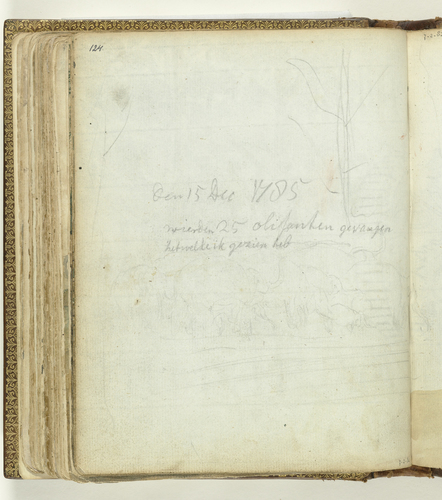 124
den 15 Dec 1785
wierden 25 olifanten gevangen
hetwelke ik gezien heb